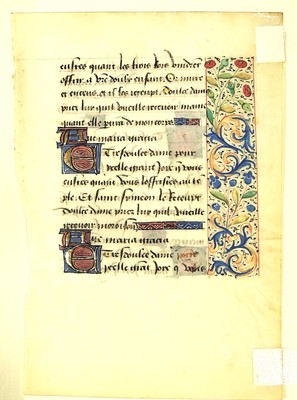 eustes quant les trois Rois vindrēt
offrir a vre doulx enfant Or mirre
et encens et il les receupt Doulce dame
priez luy quil vueille recevoir mame
quant elle ptira de mon corps
Aue maria gracia
Tres doulce dame pour
ycelle grant Joye q̄ vous
eustes quant vous loffristes au tē
ple Et saint Symeon le Receupt
doulce dame priez luy quil vueille
recevoir
Aue maria gracia
Tres doulce dame pour
ycelle grāt Joye q̄ vous